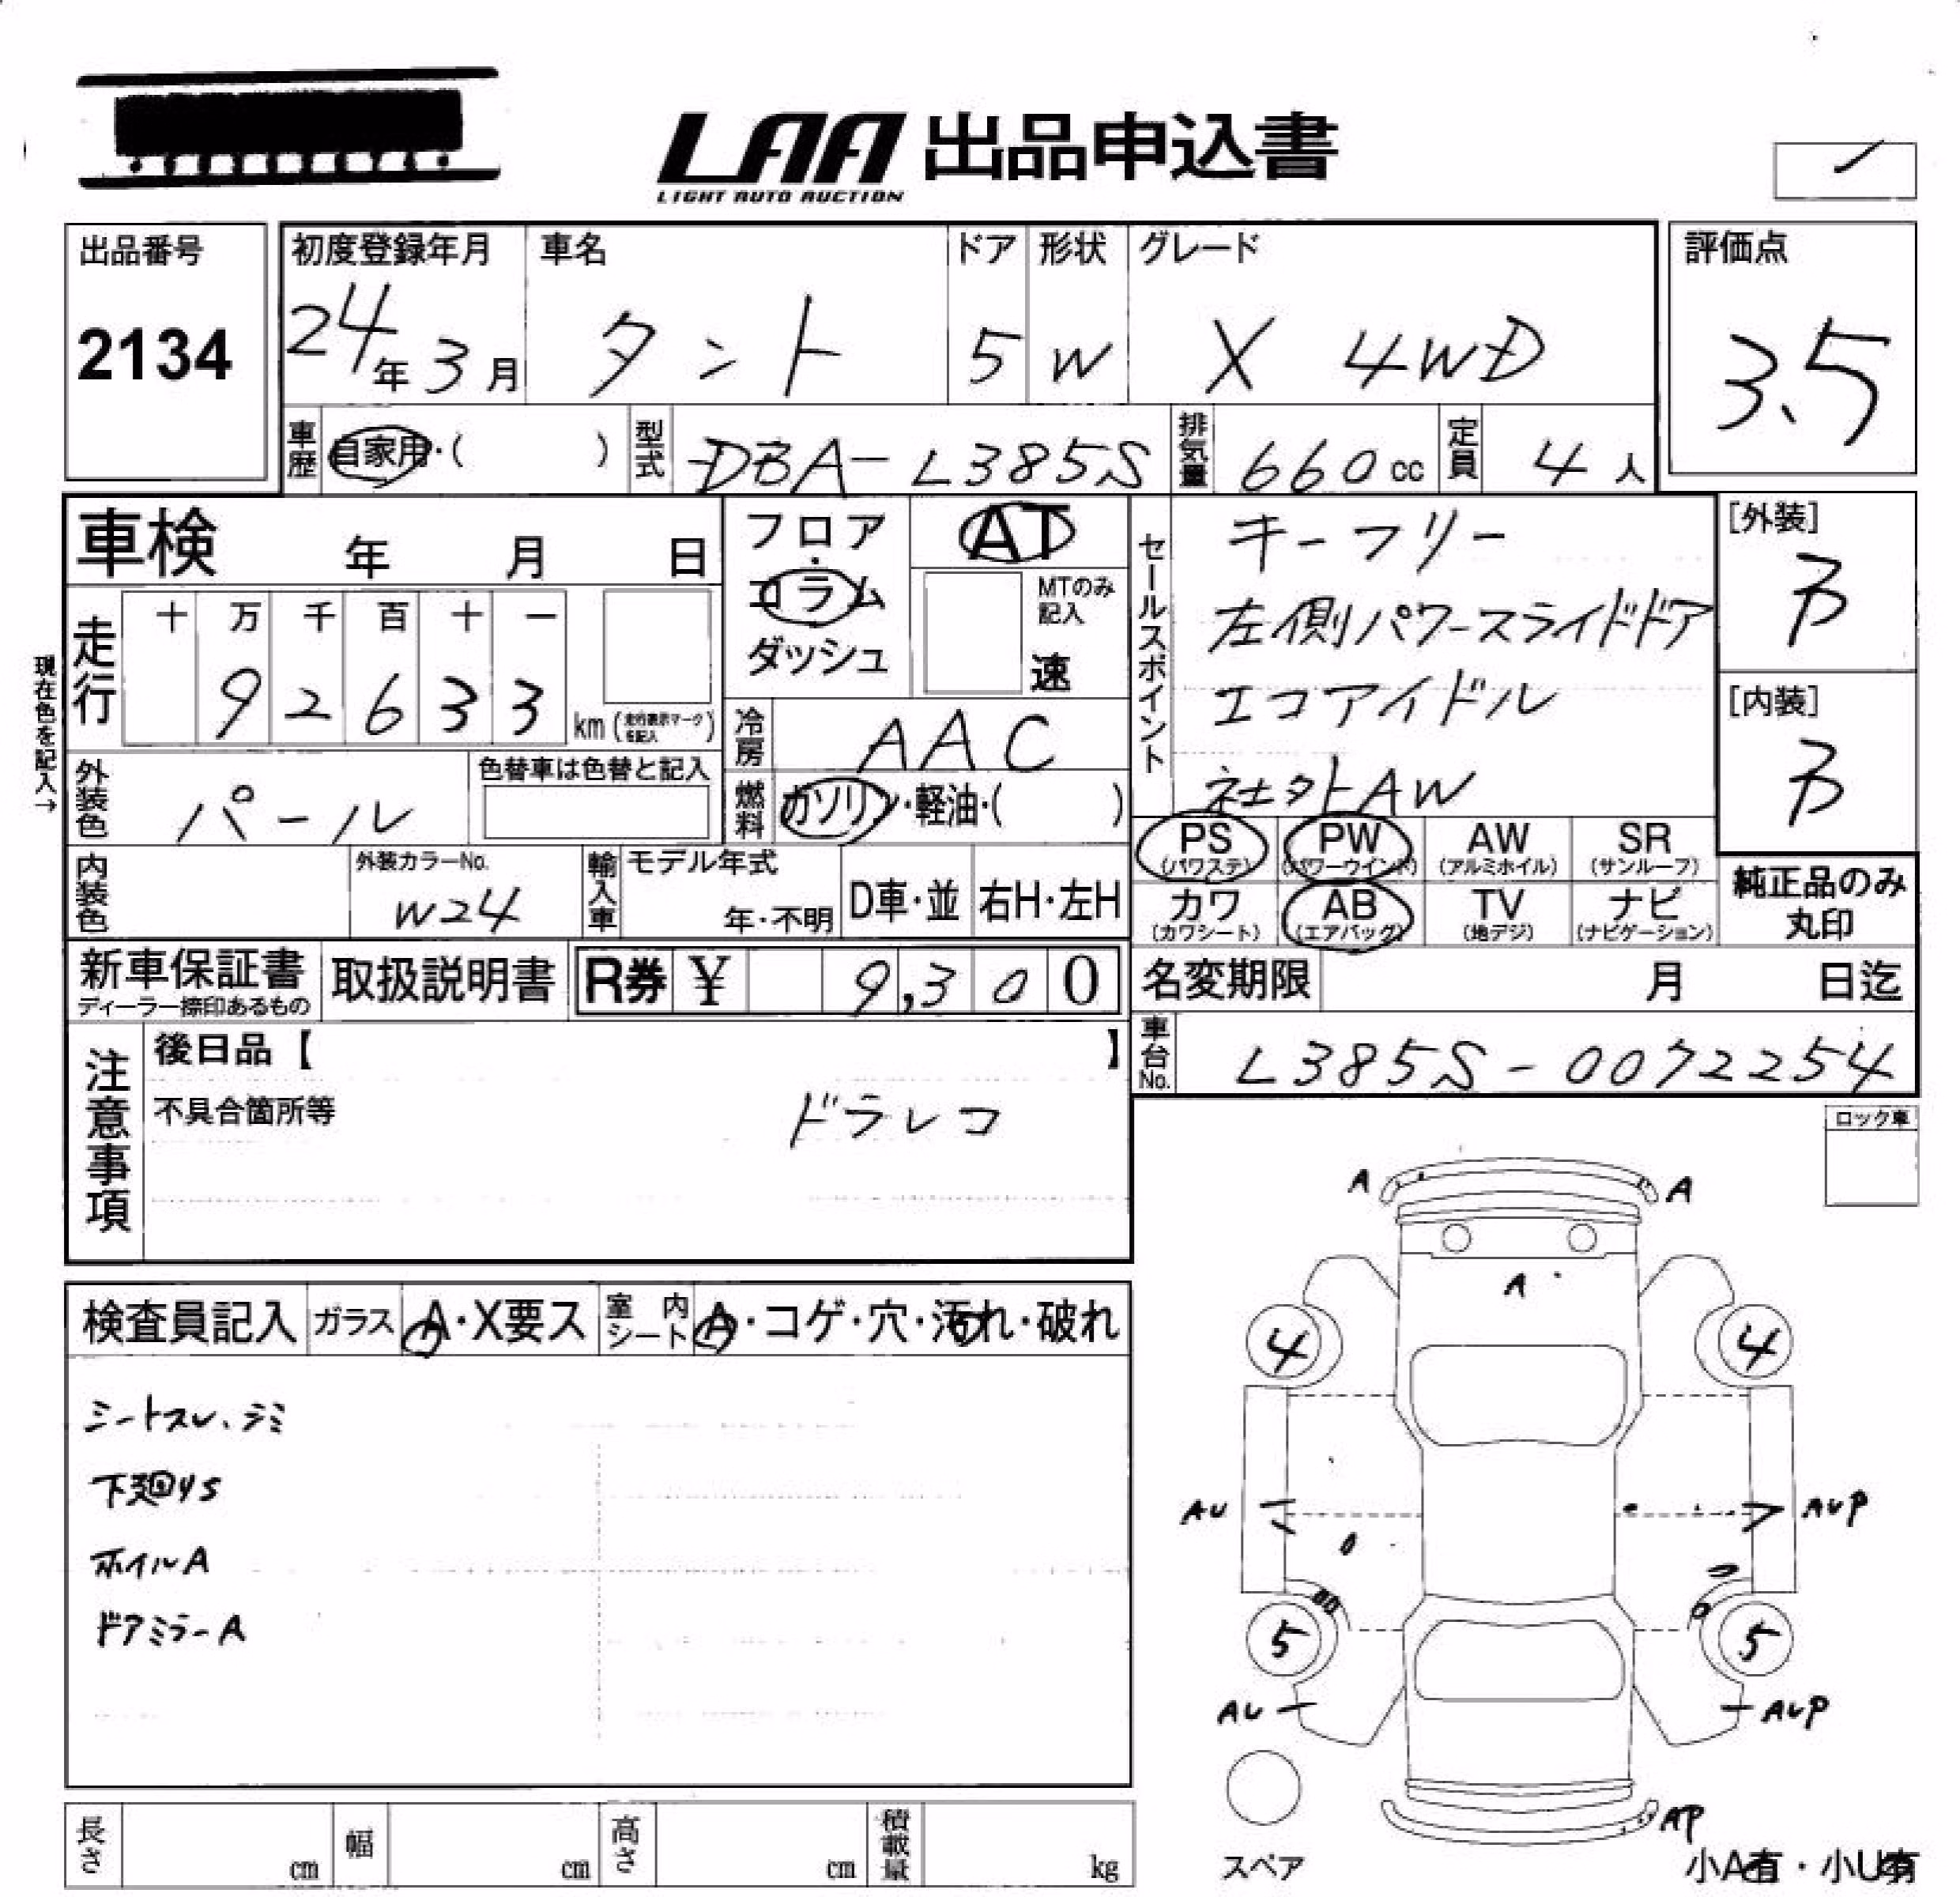 LAA 出品申込書
LIGHT AUTO AUCTION
出品番号
2134
初度登録年月
24年3月
車名
タント
ドア
5
形状
W
グレード
X 4WD
評価点
3.5
車歴
自家用・( )
型式
DBA-L385S
排気量
660cc
定員
4人
車検 年 月 日
フロア
・
コラム
ダッシュ
AT
MTのみ
記入
速
セールスポイント
キーフリー
左側パワースライドドア
エコアイドル
社外AW
[外装]
[内装]
現在色を記入→
走行
十 万 千 百 十 一
9 2 6 3 3
km (走行表示マークを記入)
冷房
AAC
外装色
パール
色替車は色替と記入
燃料
ガソリン・軽油・( )
PS
(パワステ)
PW
(パワーウインド)
AW
(アルミホイル)
SR
(サンルーフ)
カワ
(カワシート)
AB
(エアバッグ)
TV
(地デジ)
ナビ
(ナビゲーション)
純正品のみ
丸印
内装色
外装カラーNo.
W24
輸入車
モデル年式
年・不明
D車・並
右H・左H
新車保証書
ディーラー捺印あるもの
取扱説明書
R券 ¥ 9,300
名変期限 月 日迄
車台No.
L385S-0072254
注意事項
後日品【 】
不具合箇所等
ドラレコ
ロック車
検査員記入
ガラス
A・X要ス
室内シート
A・コゲ・穴・汚れ・破れ
シートスレ、シミ
下廻りS
ホイルA
ドアミラーA
A
A
A
4
4
AU
AUP
5
5
AU
AUP
AP
スペア
小A有・小U有
長さ cm
幅 cm
高さ cm
積載量 kg